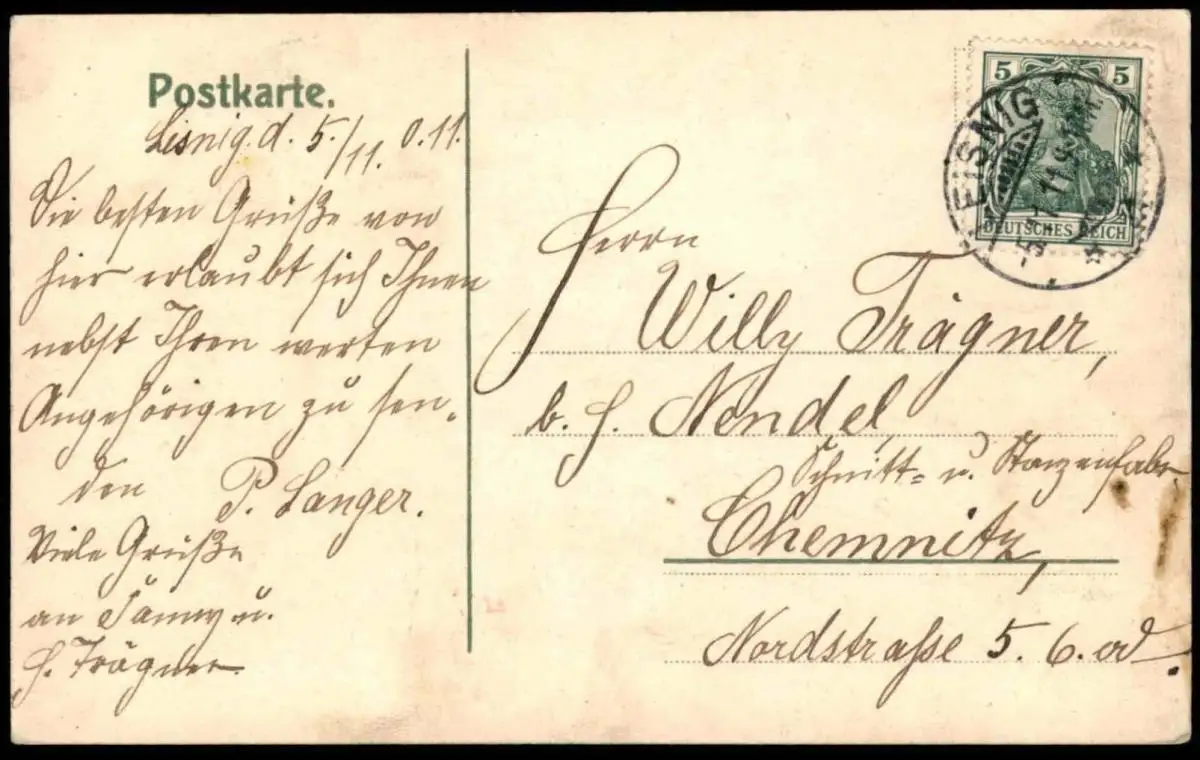 Postkarte.
Leisnig. d. 5./11. 0.11.
Die besten Grüße von
hier erlaubt sich Ihnen
nebst Ihren werten
Angehörigen zu sen-
den P. Langer.
Viele Grüße
an u.
H. Trägner.
5 5
DEUTSCHES REICH
LEISNIG
5. 11. 11. 9-10
Herrn
Willy Trägner,
b. H. Nendel,
Schnitt- u. Stanzenfabr.
Chemnitz,
Nordstraße 5. 6. od.